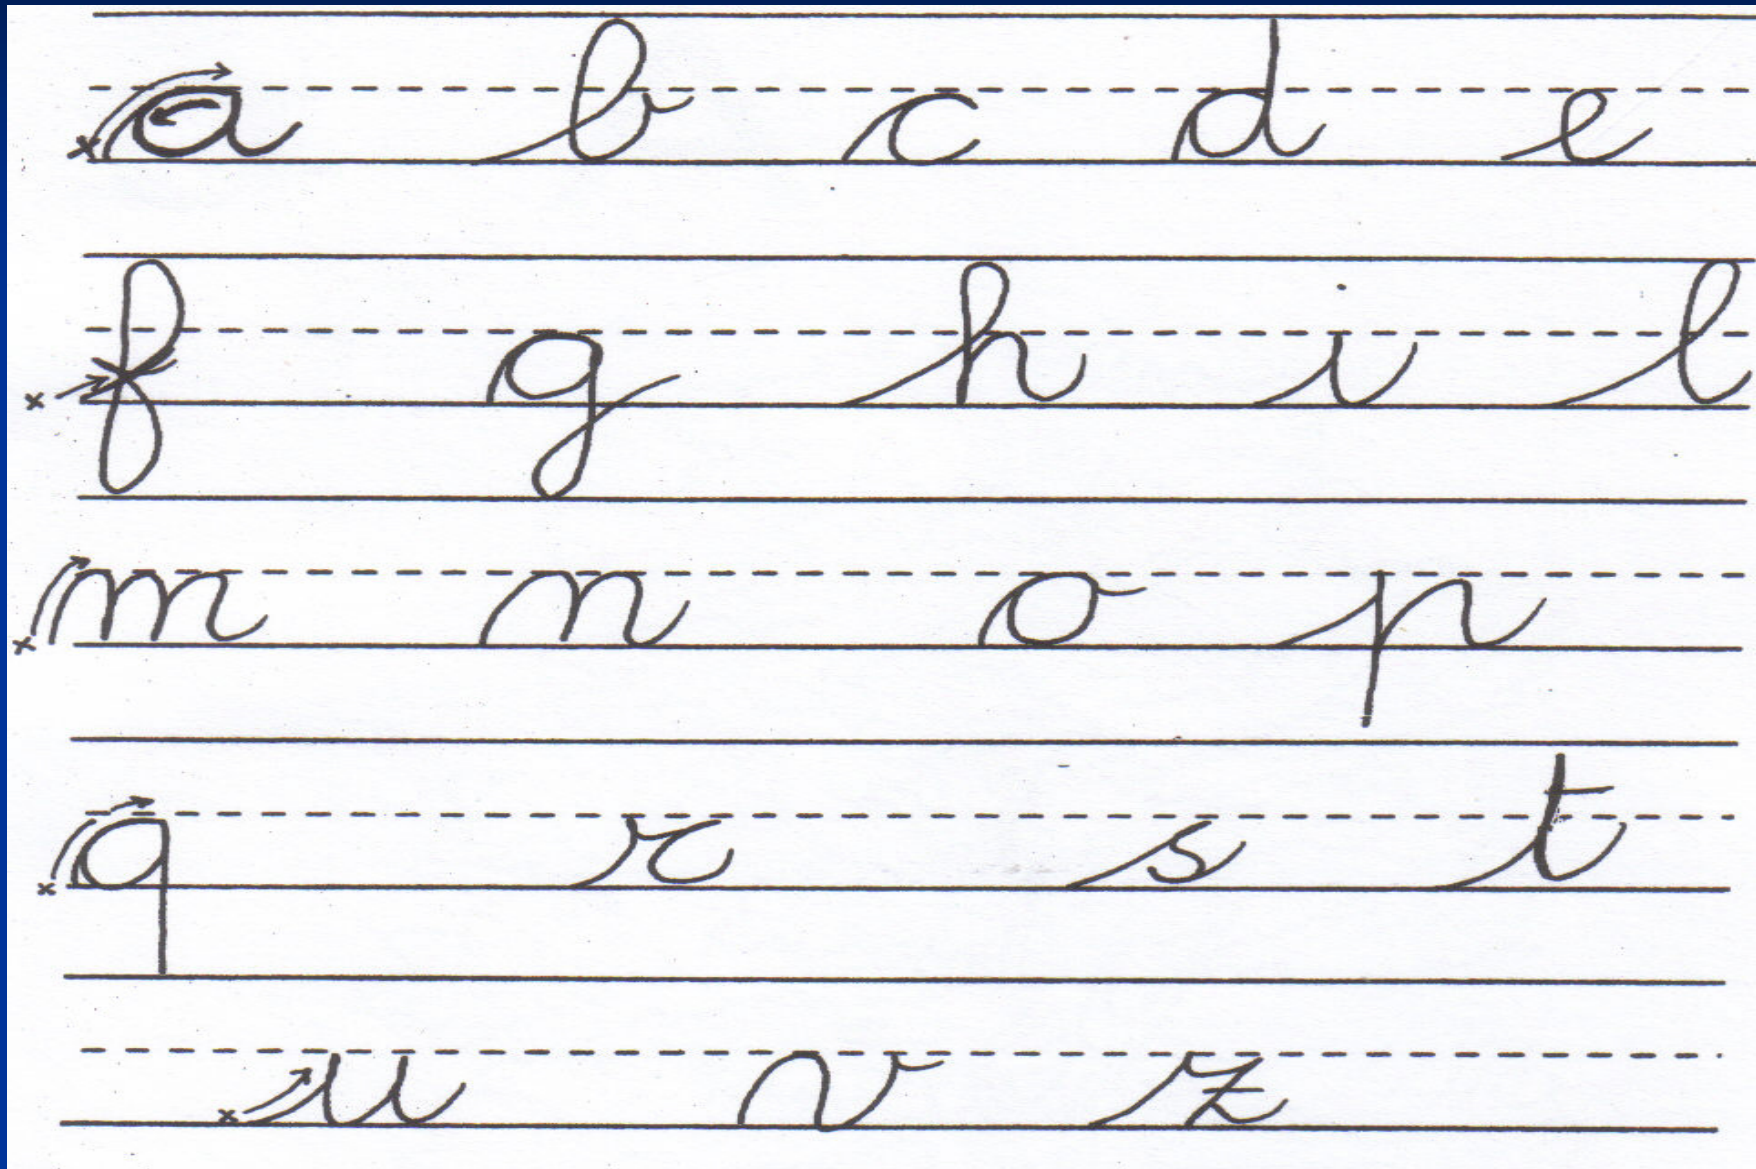 a b c d e
f g h i l
m n o p
q r s t
u v z